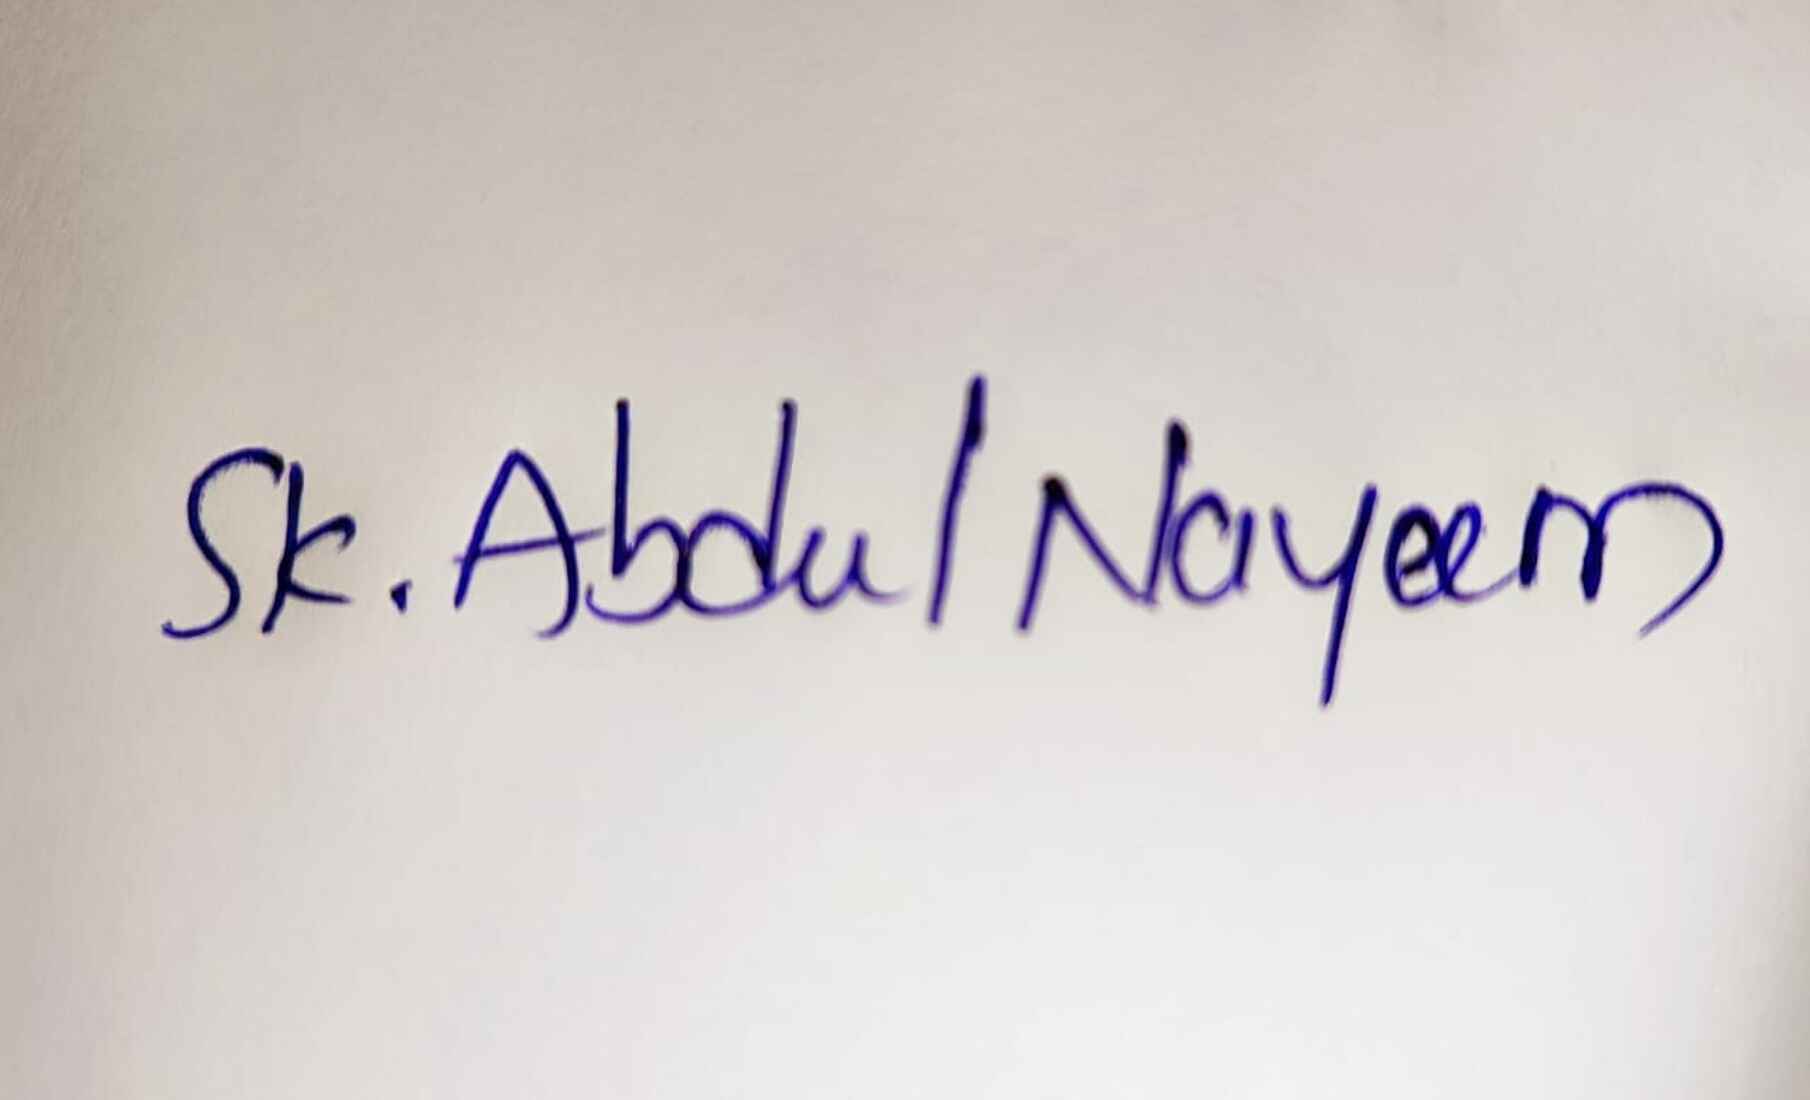 Sk. Abdul Nayeem